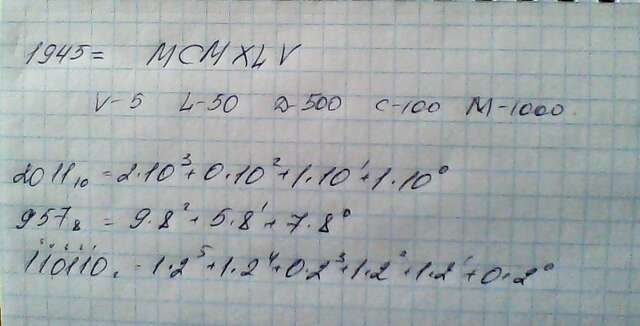 1945 = MCMXLV
V-5 L-50 D-500 C-100 M-1000
2011₁₀ = 2·10³+0·10²+1·10¹+1·10⁰
957₈ = 9·8²+5·8¹+7·8⁰
110110₂ = 1·2⁵+1·2⁴+0·2³+1·2²+1·2¹+0·2⁰